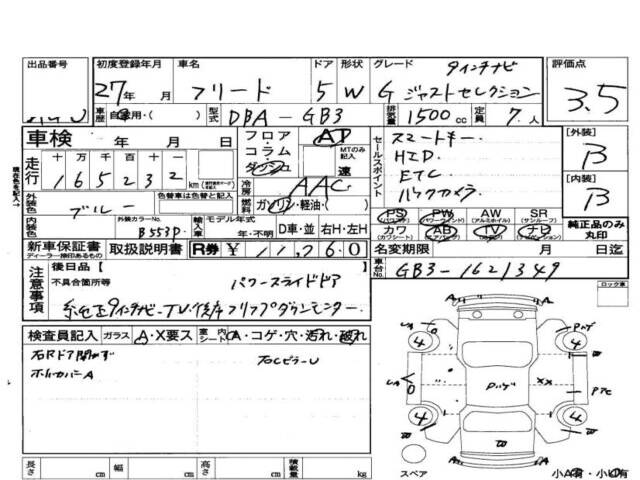 出品番号 初度登録年月 車名 ドア 形状 グレード 9インチナビ 評価点
27年 月 フリード 5 W G ジャストセレクション 3.5
車歴 自家用・( ) 型式 DBA-GB3 排気量 1500cc 定員 7人
車検 年 月 日 フロア・コラム・ダッシュ AT セールスポイント スマートキー. [外装] B
走行 十 万 千 百 十 一 MTのみ記入 速 HID.
165232 km 冷房 AAC ETC [内装] B
現車名を記入→
外装色 ブルー 色替車は色替と記入 燃料 ガソリン・軽油・( ) バックカメラ.
内装色 外装カラーNo. B553P. 輸入車 モデル年式 年・不明 D車・並 右H・左H PS PW AW SR
カワ AB TV ナビ 純正品のみ丸印
新車保証書 取扱説明書 R券 ¥11,260 名変期限 月 日迄
ディーラー捺印あるもの
注意事項 後日品【 】 パワースライドドア 車台No. GB3-1621349
不具合箇所等 ロック車
純正9インチナビ-TV・後席フリップダウンモニター
検査員記入 ガラス A・X要ス 室内シート A・コゲ・穴・汚れ・破れ
右Rドア開かず 右CピラーU
ホイルカバーA
4 4
4 4
W
スペア 小A有・小U有
長さ cm 幅 cm 高さ cm 積載量 kg